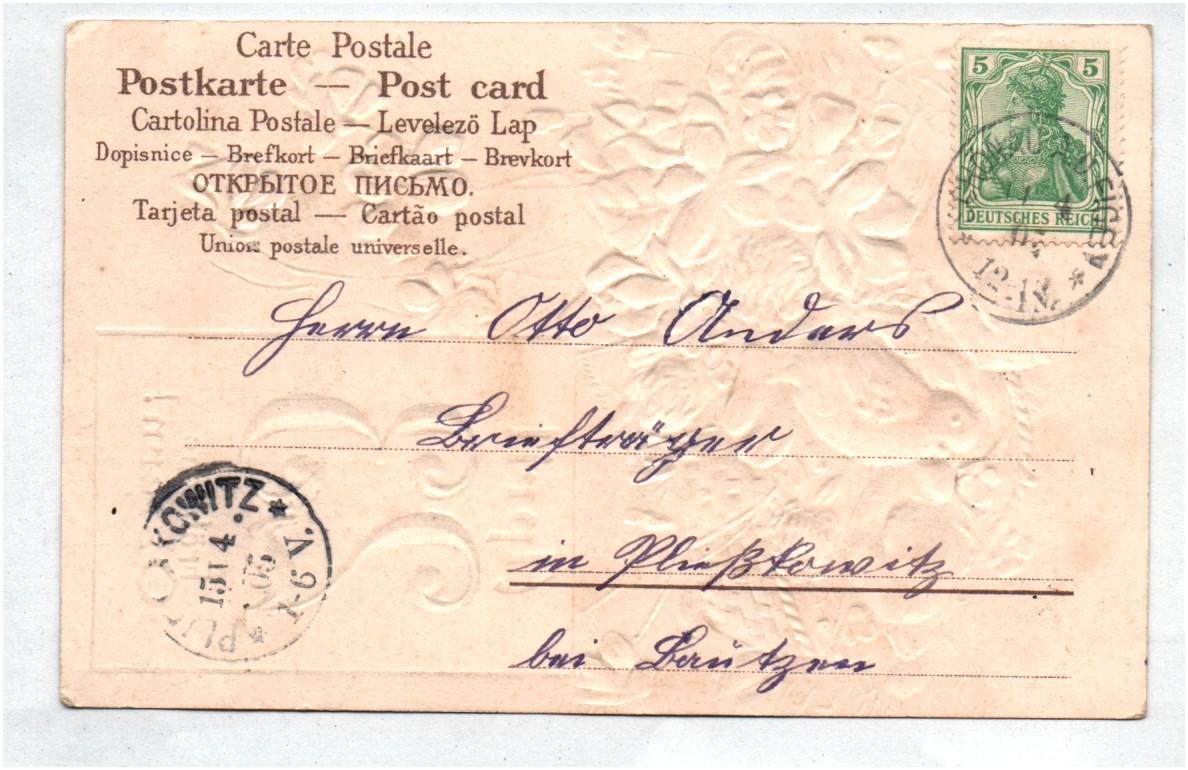 Carte Postale
Postkarte — Post card
Cartolina Postale — Levelező Lap
Dopisnice — Brefkort — Briefkaart — Brevkort
ОТКРЫТОЕ ПИСЬМО.
Tarjeta postal — Cartão postal
Union postale universelle.
5 5
DEUTSCHES REICH
12-1N.
Herrn Otto Anders
Briefträger
in Pließkowitz
bei Bautzen
KOWITZ
15 4
05
V.